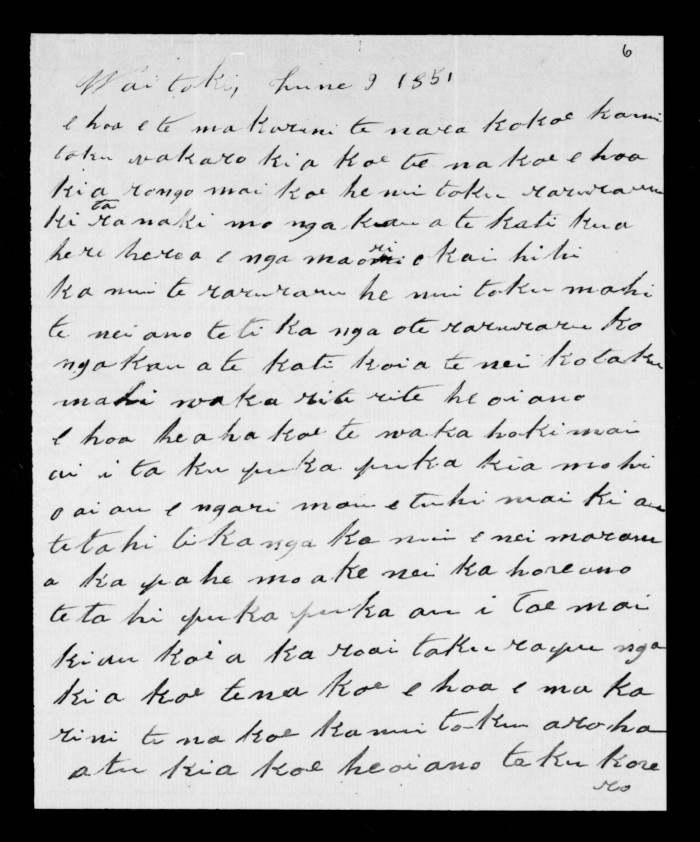 6
Wai toki, hune 9 1851
e hoa e te makarini te nara kokoe ka nui
toku wakaro kia koe te na koe e hoa
kia rongo mai koe he nui toku raruraru
ki taranaki mo nga kau a te kati kua
here herea e nga maori e kai hihi
ka nui te raruraru he nui toku mahi
te nei ano te ti ka nga ote raruraru ko
nga kau a te kati koia te nei ko taku
mahi waka rite rite heoi ano
e hoa he aha koe te waka hoki mai
ai i ta ku puka puka kia mohi
o ai au e ngari mau e tuhi mai ki au
te tahi tikanga ka nui e nei marama
a ka pahe mo ake nei ka hore ano
te ta hi puka puka au i tae mai
ki au koia ka roa i taku rapu nga
kia koe tena koe e hoa e ma ka
rini te na koe ka nui toku aroha
atu kia koe heoiano taku kore
ro